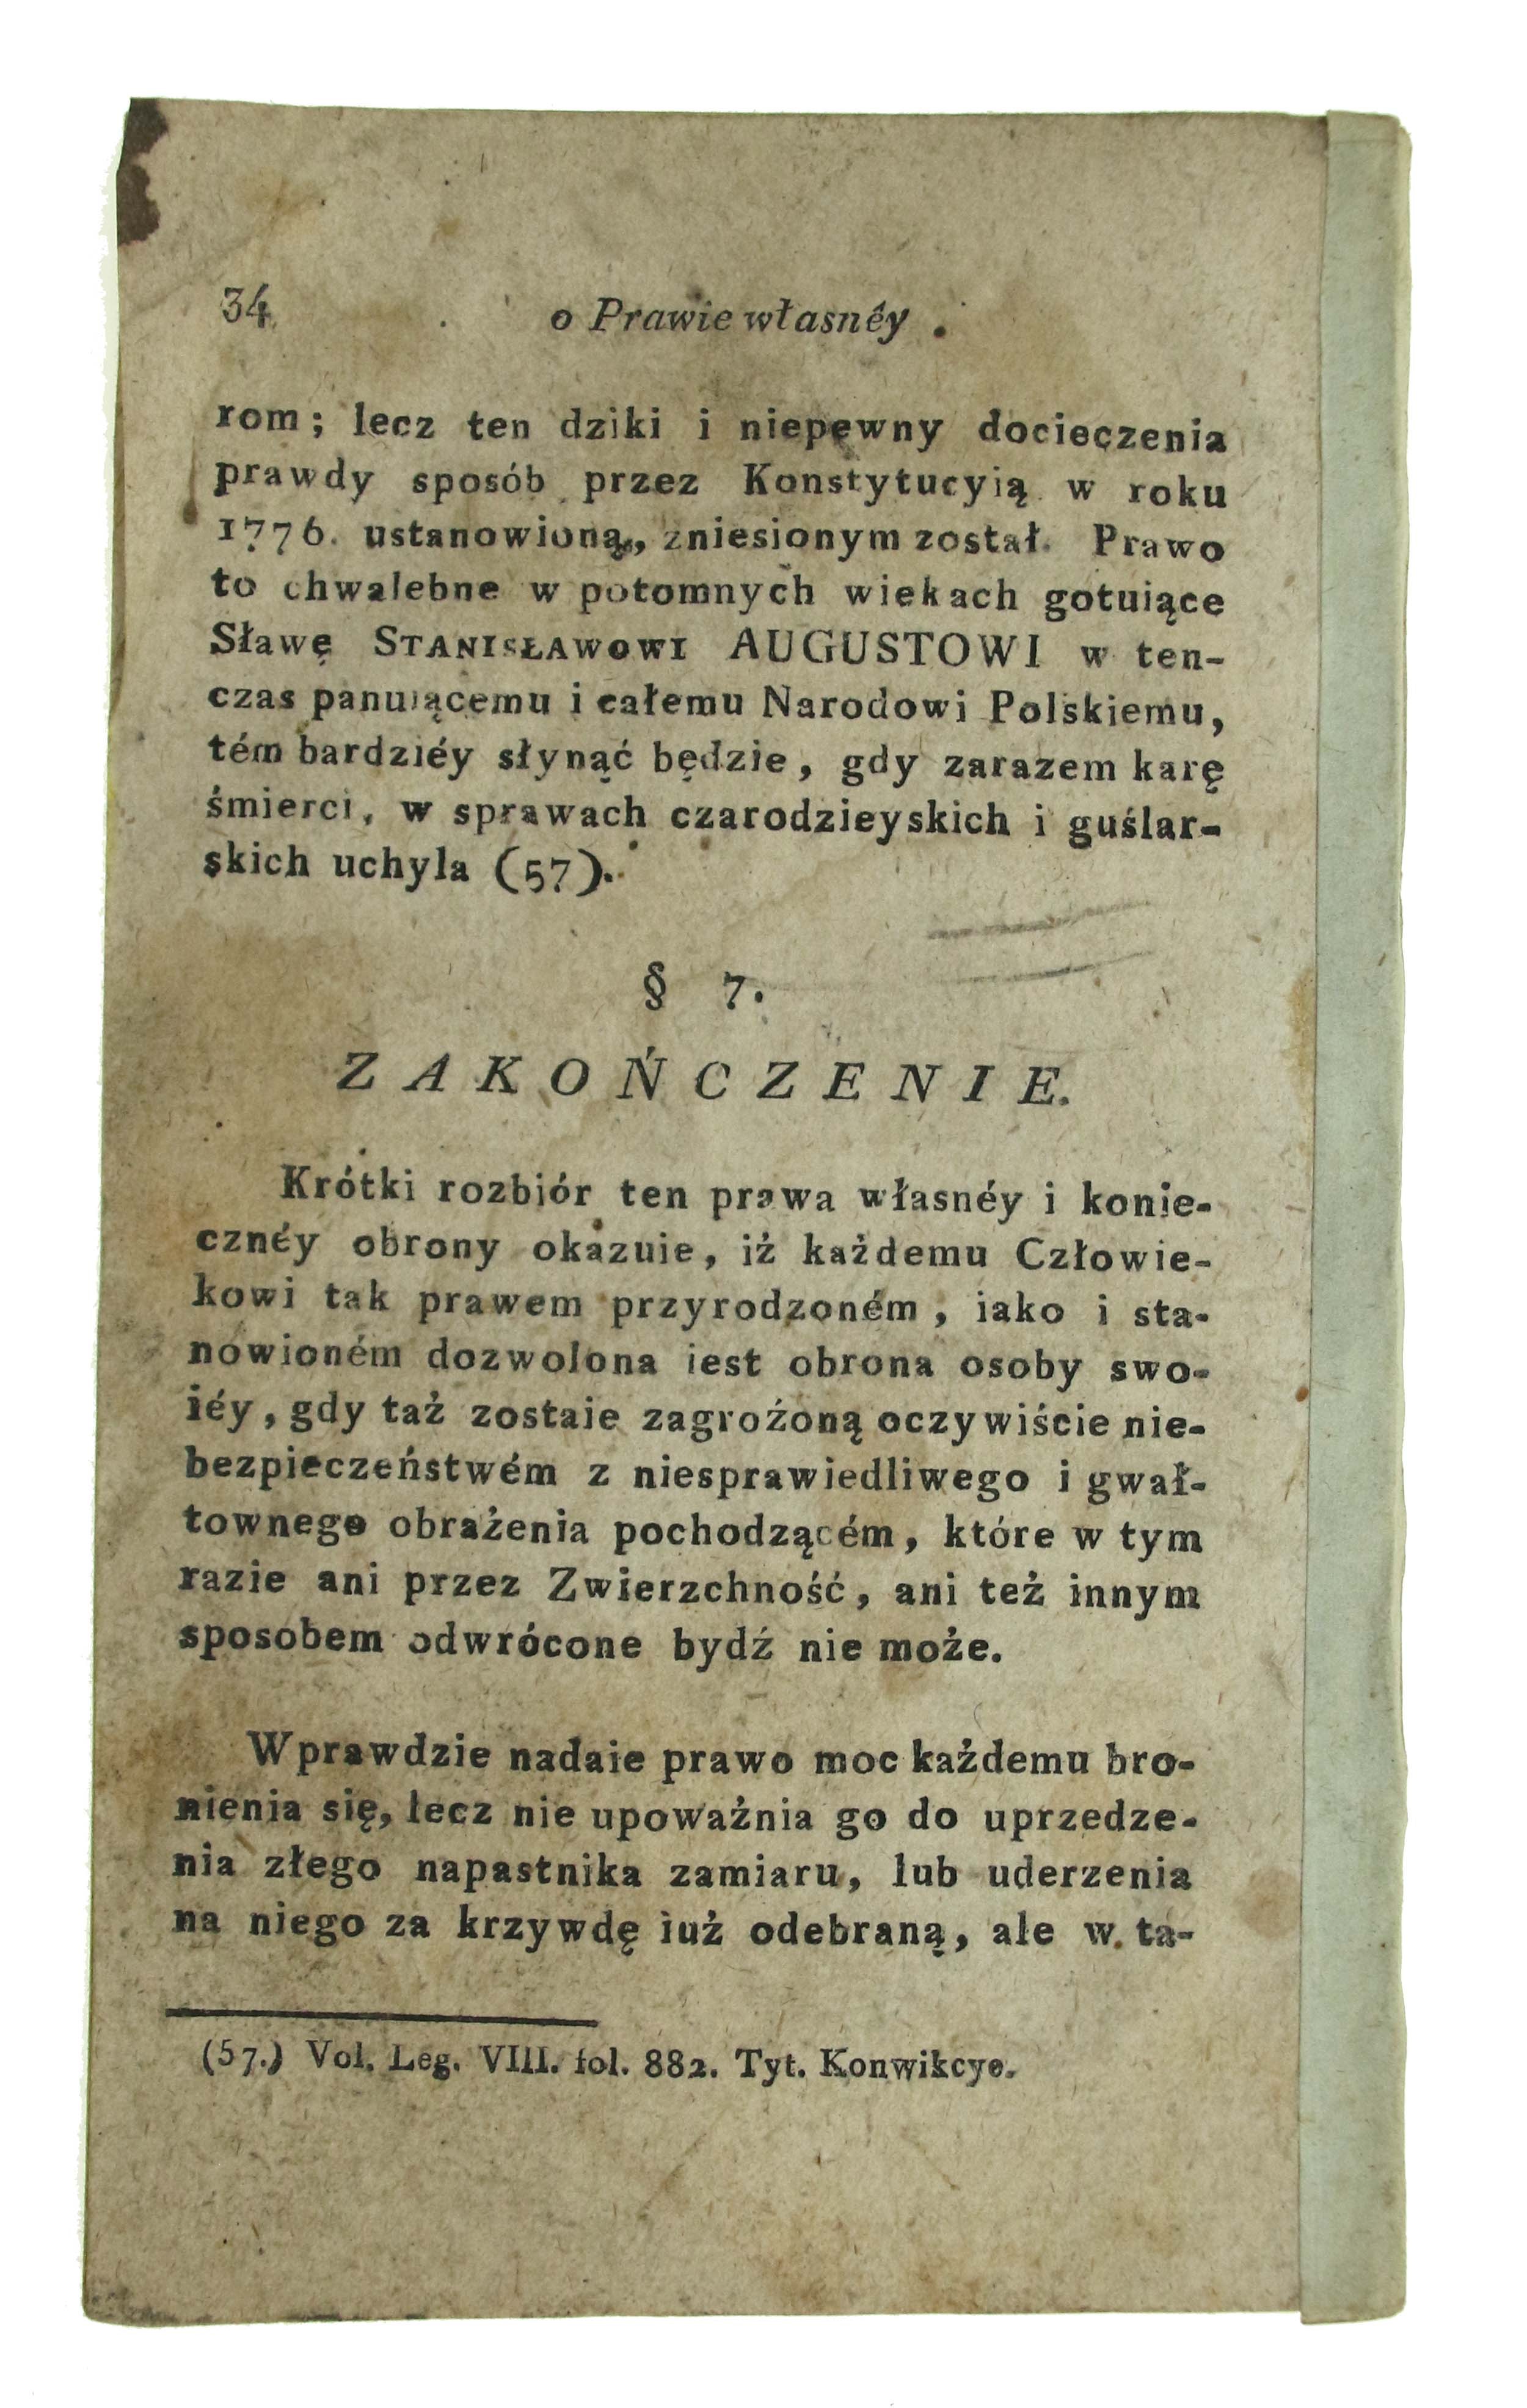 34 o Prawie własnéy .
rom ; lecz ten dziki i niepewny docieczenia
prawdy sposób przez Konstytucyią w roku
1776. ustanowioną, zniesionym został. Prawo
to chwalebne w potomnych wiekach gotuiące
Sławę STANISŁAWOWI AUGUSTOWI w ten-
czas panuiącemu i całemu Narodowi Polskiemu,
tém bardziéy słynąć będzie, gdy zarazem karę
śmierci, w sprawach czarodzieyskich i guślar-
skich uchyla (57).
§ 7.
ZAKOŃCZENIE.
Krótki rozbiór ten prawa własnéy i konie-
cznéy obrony okazuie, iż każdemu Człowie-
kowi tak prawem przyrodzoném , iako i sta-
nowioném dozwolona iest obrona osoby swo-
iéy, gdy taż zostaie zagrożoną oczywiście nie-
bezpieczeństwém z niesprawiedliwego i gwał-
townego obrażenia pochodzącém, które w tym
razie ani przez Zwierzchność, ani też innym
sposobem odwrócone bydź nie może.
Wprawdzie nadaie prawo moc każdemu bro-
nienia się, lecz nie upoważnia go do uprzedze-
nia złego napastnika zamiaru, lub uderzenia
na niego za krzywdę iuż odebraną, ale w ta-
(57.) Vol. Leg. VIII. fol. 882. Tyt. Konwikcye.